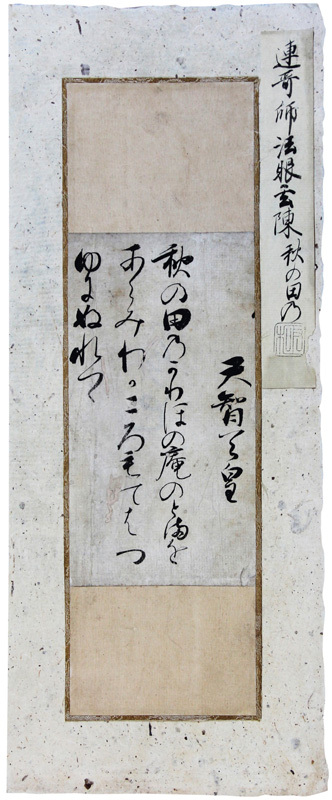 連哥師法眼玄陳 秋の田乃
天智天皇
秋の田乃かりほの庵のとまを
あらみわかころもてはつ
ゆにぬれつゝ